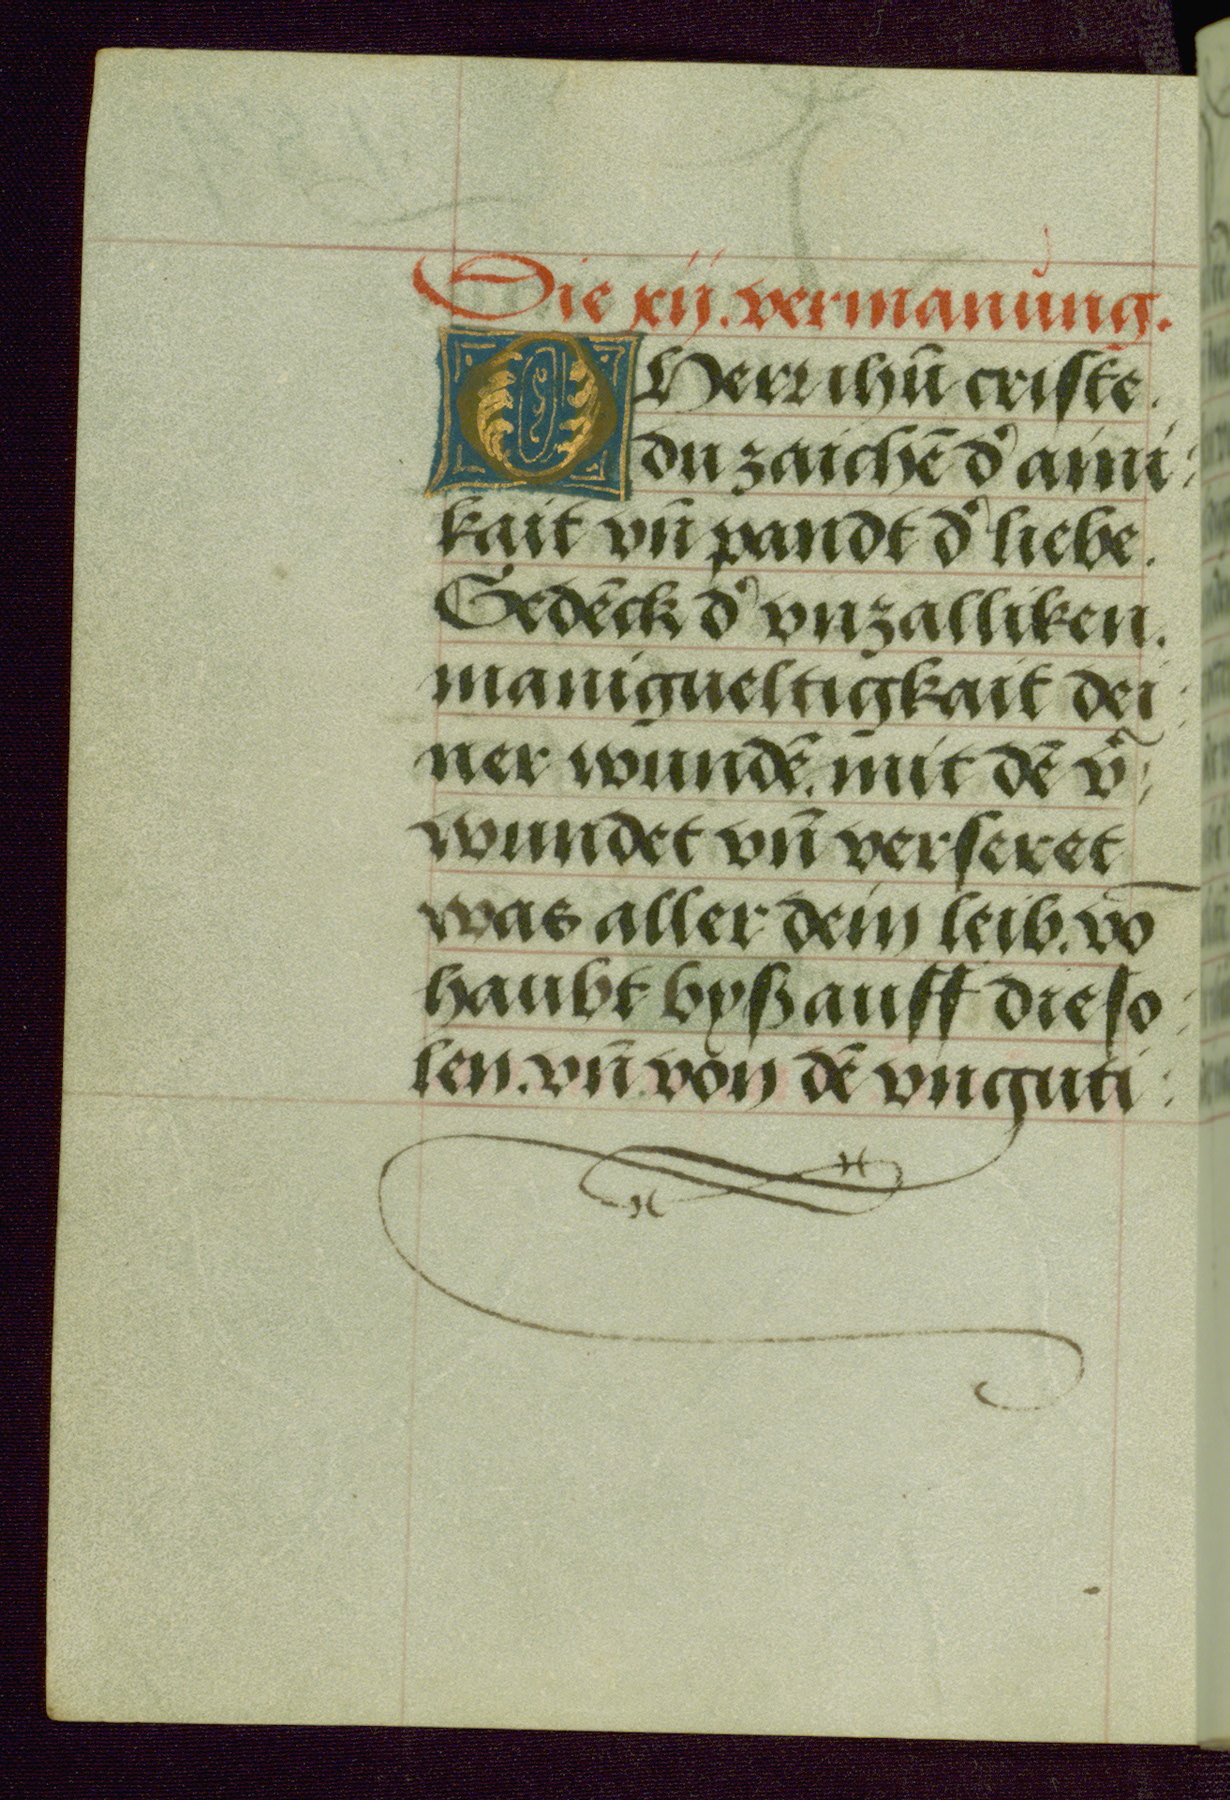 Die xij. vermanung.
O Herr ihū criste.
du zaichē d᾽ aini-
kait vn̄ pandt d᾽ liebe.
Gedēck d᾽ vnzalliken.
manigueltigkait dei-
ner wundē. mit dē v᾽-
wundet vn̄ verseret
was aller dein leib. vō
haubt byß auff die so-
len. vn̄ von dē vnguti-